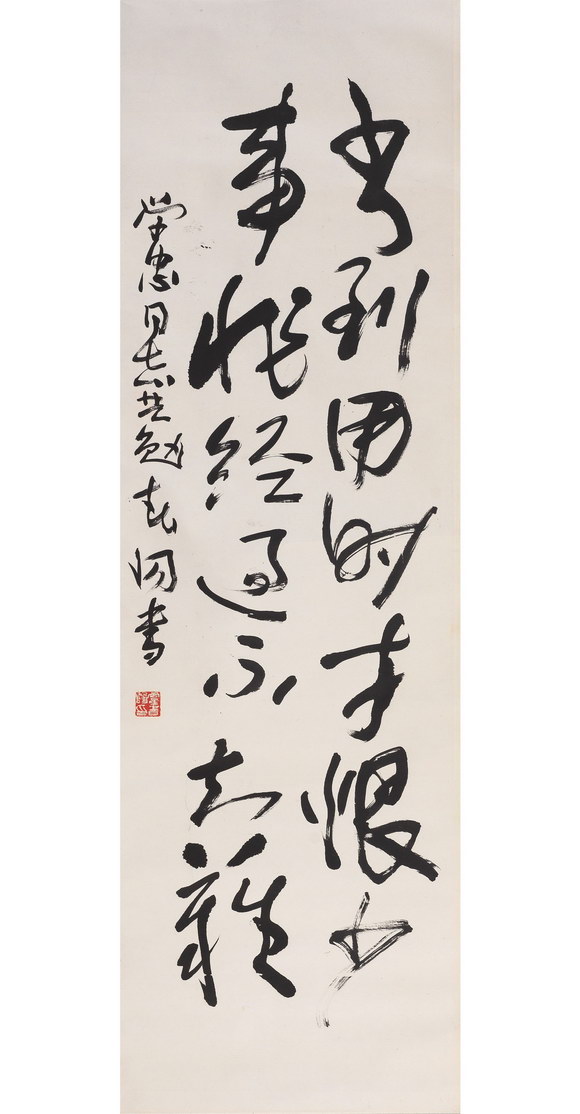 书到用时才恨少
事非经过不知難
学忠同志共勉 春 书